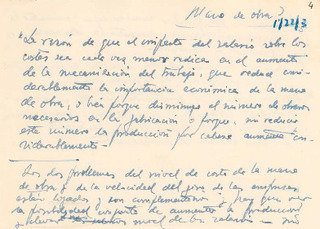 Mano de obra?
4
1/22/3
"La razón de que el impacto del salario sobre los
costes sea cada vez menor radica en el aumento
de la mecanización del trabajo, que reduce consi-
derablemente la importancia económica de la mano
de obra, o bien porque disminuye el número de obreros
necesarios en la fabricación o porque, sin reducir
este número la producción por cabeza aumenta con-
siderablemente —
Los dos problemas del nivel de coste de la mano
de obra y de la velocidad del giro de las empresas
están ligados y son complementarios y hay que ver
la posibilidad conjunta de aumentar la producción
nivel de los salarios — sin